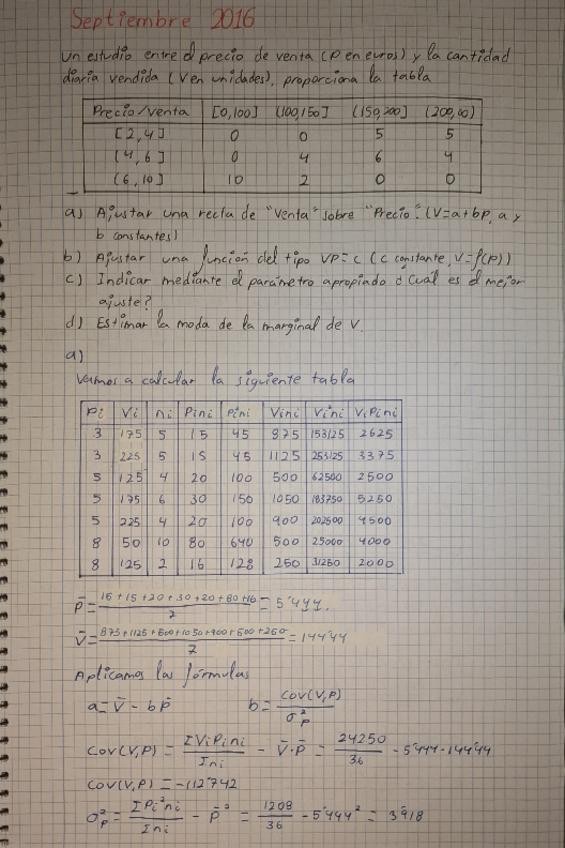 Septiembre 2016
Un estudio entre el precio de venta (P en euros) y la cantidad
diaria vendida (V en unidades), proporciona la tabla
Precio/Venta [0,100] (100,150] (150,200] (200,00)
[2,4] 0 0 5 5
(4,6] 0 4 6 4
(6,10] 10 2 0 0
a) Ajustar una recta de "Venta" sobre "Precio". (V=a+bp, a y
b constantes)
b) Ajustar una función del tipo VP=c (c constante, V=f(P))
c) Indicar mediante el parámetro apropiado ¿Cuál es el mejor
ajuste?
d) Estimar la moda de la marginal de V.
a)
Vamos a calcular la siguiente tabla
Pi Vi ni Pini Pi²ni Vini Vi²ni ViPini
3 175 5 15 45 875 153125 2625
3 225 5 15 45 1125 253125 3375
5 125 4 20 100 500 62500 2500
5 175 6 30 150 1050 183750 5250
5 225 4 20 100 900 202500 4500
8 50 10 80 640 500 25000 4000
8 125 2 16 128 250 31250 2000
P̄ = 15+15+20+30+20+80+16 / 7 = 5'444.
V̄ = 875+1125+500+1050+900+500+250 / 7 = 144'44
Aplicamos las fórmulas
a = V̄ - b P̄ b = Cov(V,P) / σ²p
Cov(V,P) = ΣViPini / Σni - V̄·P̄ = 24250 / 36 - 5'444·144'44
Cov(V,P) = -112'742
σ²p = ΣPi²ni / Σni - P̄² = 1208 / 36 - 5'444² = 3'918